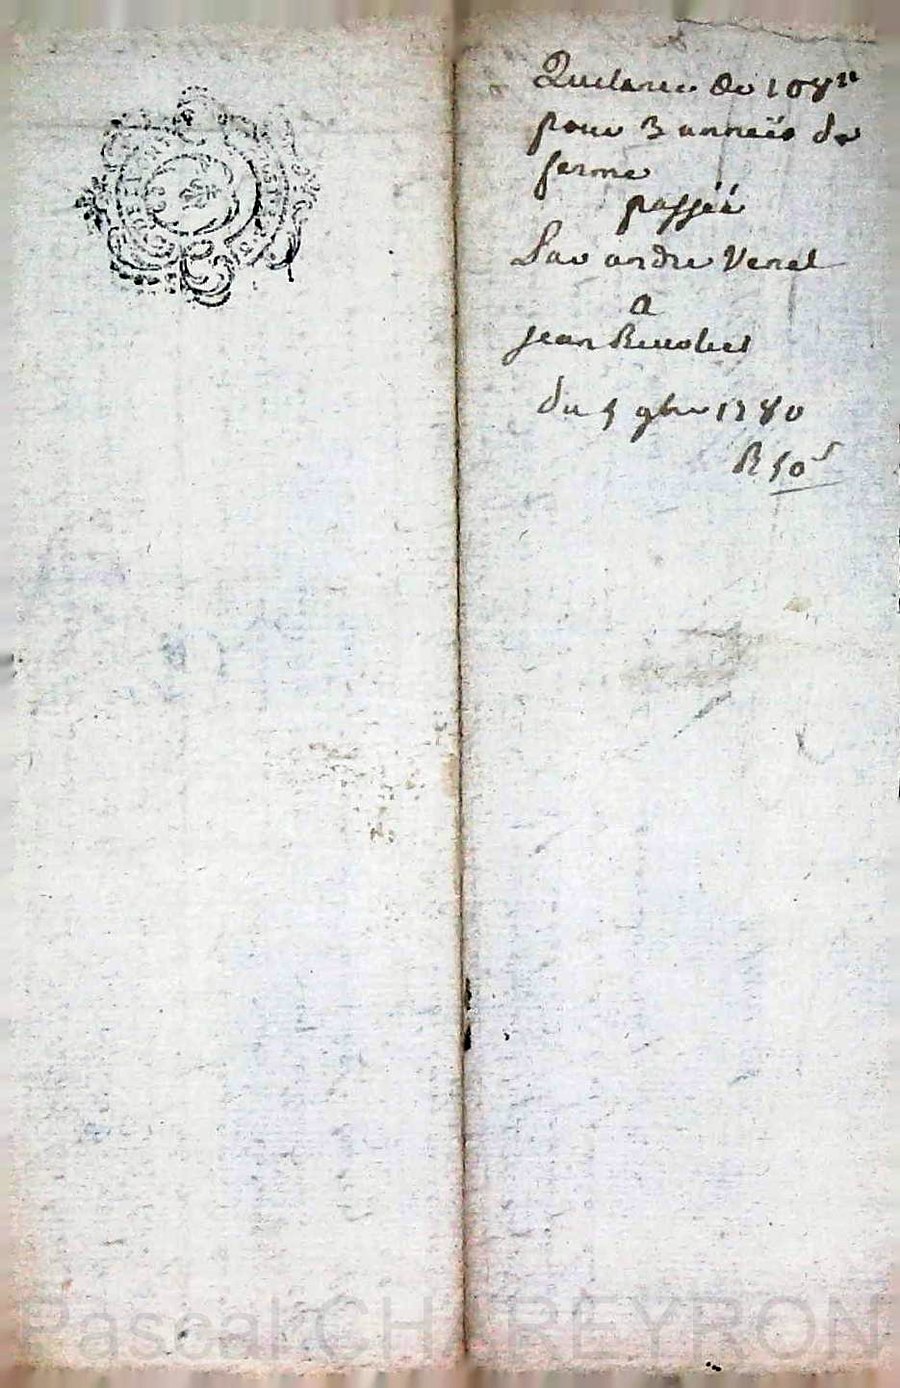 Quittance de 108ᵗᵗ
pour 3 années de
ferme
passée
Par andre Venel
a
jean Revolier
du 5 9bre 1780
R 50ˢ
Pascal CHAREYRON